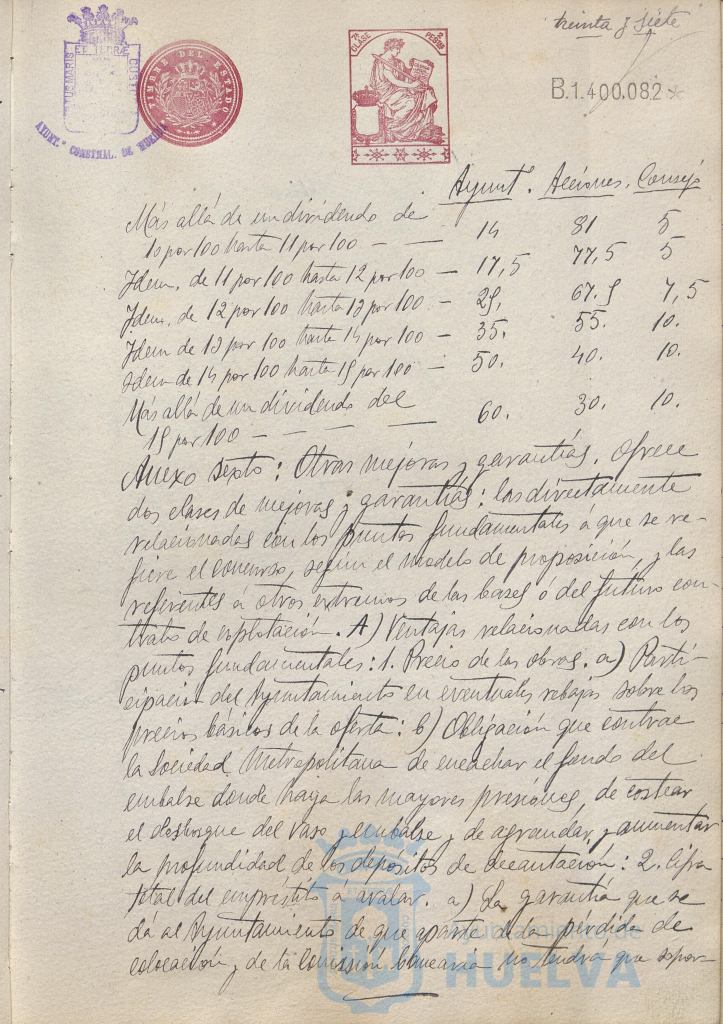 treinta y siete
PORTUS MARIS ET TERRÆ CUSTODIA
AYUNT.º CONSTNAL. DE HUELVA
TIMBRE DEL ESTADO
7ª CLASE 2 PESETAS
B.1.400.082*
Ayuntº. Acciones. Consejo
Más allá de un dividendo de
10 por 100 hasta 11 por 100 — — 14 81 5
Idem. de 11 por 100 hasta 12 por 100 — 17,5 77,5 5
Idem. de 12 por 100 hasta 13 por 100 — 25, 67.5 7,5
Idem de 13 por 100 hasta 14 por 100 — 35. 55. 10.
Idem de 14 por 100 hasta 15 por 100 — 50. 40. 10.
Más allá de un dividendo del
15 por 100 — — — — — 60. 30. 10.
Anexo sexto: Otras mejoras y garantías. Ofrece
dos clases de mejoras y garantías: las directamente
relacionadas con los puntos fundamentales á que se re-
fiere el concurso, según el modelo de proposición, y las
referentes á otros extremos de las bases ó del futuro con-
trato de explotación. A) Ventajas relacionadas con los
puntos fundamentales: 1. Precio de las obras. a) Parti-
cipación del Ayuntamiento en eventuales rebajas sobre los
precios básicos de la oferta: b) Obligación que contrae
la Sociedad Metropolitana de encachar el fondo del
embalse donde haya las mayores presiones, de costear
el desbosque del vaso y embalse y de agrandar y aumentar
la profundidad de los depósitos de decantación: 2. Cifra
total del empréstito á avalar. a) La garantía que se
dá al Ayuntamiento de que aparte de la pérdida de
colocación y de la comisión bancaria no tendrá que sopor-
Ayuntamiento de
HUELVA